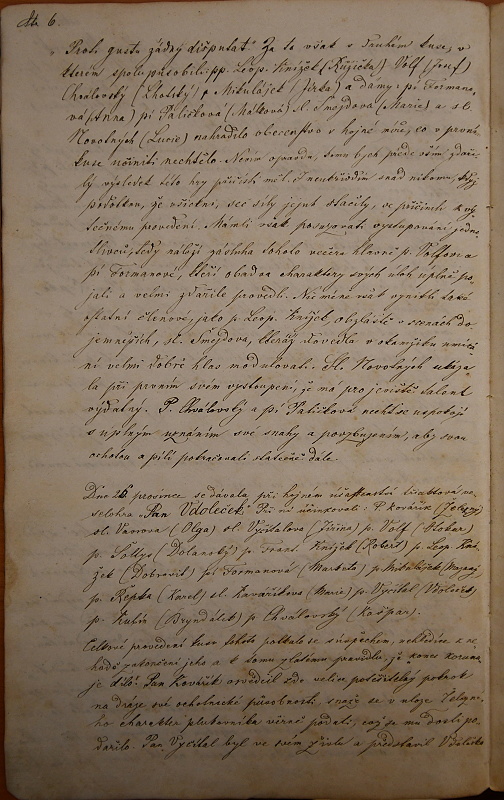 6.
"Proti gustu žádný dišputát." Za to však v druhém kuse, v
kterém spolupůsobili: pp. Leop. Knížek (Růžička) Volf (Josef)
Chválovský (Lhotský) p. Mikulájek (Jirka) a dámy: pí Formano-
vá (Anna) pí Paličková (Málková) sl. Smejdova (Marie) a sl.
Novotných (Lucie) nahradilo obecenstvo v hojné míře, co v prvním
kuse učiniti nechtělo. Nevím opravdu, komu bych přede vším zdaři-
lý výsledek této hry přičísti měl. I neukřivdím snad nikomu, když
podotknu, že všickni, seč síly jejich stačily, se přičinili k vý-
tečnému provedení. Mámli však posuzovati vystupování jedno-
tlivců, tedy náleží zásluha tohoto večera hlavně p. Volfovi a
pí Formanové, kteří obadva charaktery svých úloh úplně po-
jali a velmi zdařile provedli. Neméně však vynikli také
ostatní členové, jako p. Leop. Knížek obzvláště v scenách do-
jemnějších, sl. Smejdova, kteráž dovedla v okamžiku
velmi dobře hlas modulovati. Sl. Novotných ukáza-
la při prvním svém vystoupení, že má pro jeviště talent
vydatný. P. Chválovský a pí Paličková nechť se uspokojí
s úplným uznáním své snahy a povzbuzením, aby svou
ochotou a pílí pokračovali statečně dále.
Dne 26 prosince se dávala při hojném účastenství veselohra
"Pan Vdoleček". Při ní účinkovali: P. Kovařík
sl. Vavrova (Olga) sl. Vyčítalova (Jiřina) p. Volf (Otokar)
p. Šoltys (Dolanský) p. Frant. Knížek (Robert) p. Leop. Kní-
žek (Dobromil) pí Formanová (Markéta) p. Mikulájek
p. Řepka (Karel) sl. Kavaríkova (Marie) p. Vyčítal (Vdoleček)
p. Rubín (Bryndáček) p. Chválovský (Kašpar).
Celkové provedení kusu tohoto potkalo se s úspěchem, nehledíce k ne-
hodě zakončení jeho a k tomu zlatému pravidlu, že "konec korunu-
je dílo". Pan Kovářík osvědčil zde velice potěšitelný pokrok
na dráze své ochotnické působnosti, snaže se v úloze
ho charakter plukovníka věrně podati, což se mu dosti po-
dařilo. Pan Vyčítal byl ve svém živlu a představil Vdolečka